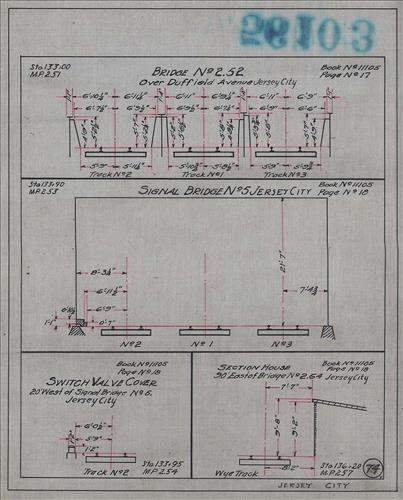 56103
Sta 133+00
M.P. 2.51
BRIDGE Nº 2.52
Over Duffield Avenue Jersey City
Book Nº 11105
Page Nº 17
6'-10½" 6'-11½" 6'-9½" 6'-11" 6'-11" 6'-9"
6'-7½" 6'-9½" 6'-6"
5'-9" 5'-11½" 5'-9"
Track Nº 2 Track Nº 1 Track Nº 3
Sta 133+90
M.P. 2.53
SIGNAL BRIDGE Nº 5 JERSEY CITY
Book Nº 11105
Page Nº 18
8'-3¼"
21'-7"
6'-11½"
7'-4¾"
6'-9"
1'-1" 0'-7"
Nº 2 Nº 1 Nº 3
Book Nº 11105
Page Nº 18
SWITCH VALVE COVER
20' West of Signal Bridge Nº 6.
Jersey City
6'-0½"
5'-9"
1'-2"
Track Nº 2
Sta 133+95
M.P. 2.54
SECTION HOUSE
90' East of Bridge Nº 2.64
Book Nº 11105
Page Nº 18
Jersey City
7'-7"
9'-8" 9'-2"
8'-2"
Wye Track
Sta 136+20
M.P. 2.57
74
JERSEY CITY